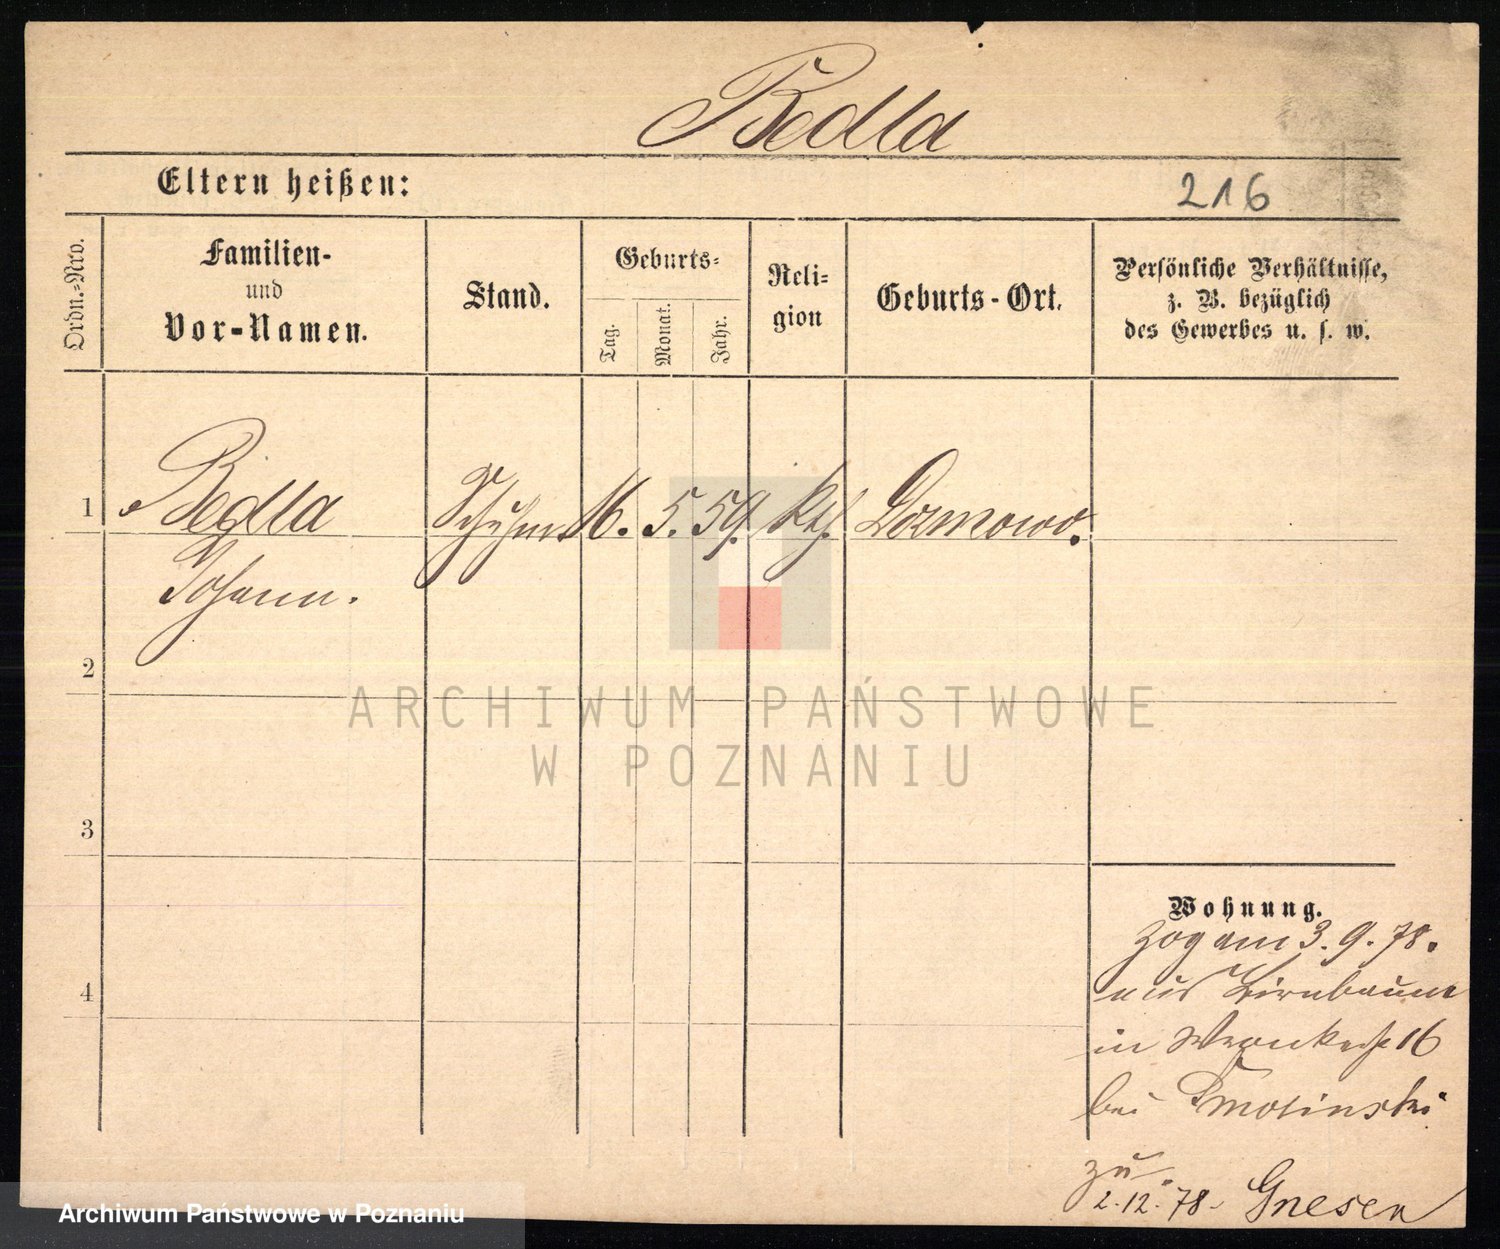 Bedla
Eltern heißen:
216
Ordn.-Nro.
Familien-
und
Vor-Namen.
Stand.
Geburts-
Tag.
Monat.
Jahr.
Reli-
gion
Geburts-Ort.
Persönliche Verhältnisse,
z. B. bezüglich
des Gewerbes u. s. w.
1 Bedla Schuhm. 16. 5. 59. kth.
Johann.
2
3
4
Wohnung.
zog am 3. 9. 78.
aus Birnbaum
in 16
bei Smolinski
zu
2.12.78. Gnesen
ARCHIWUM PAŃSTWOWE
W POZNANIU
Archiwum Państwowe w Poznaniu